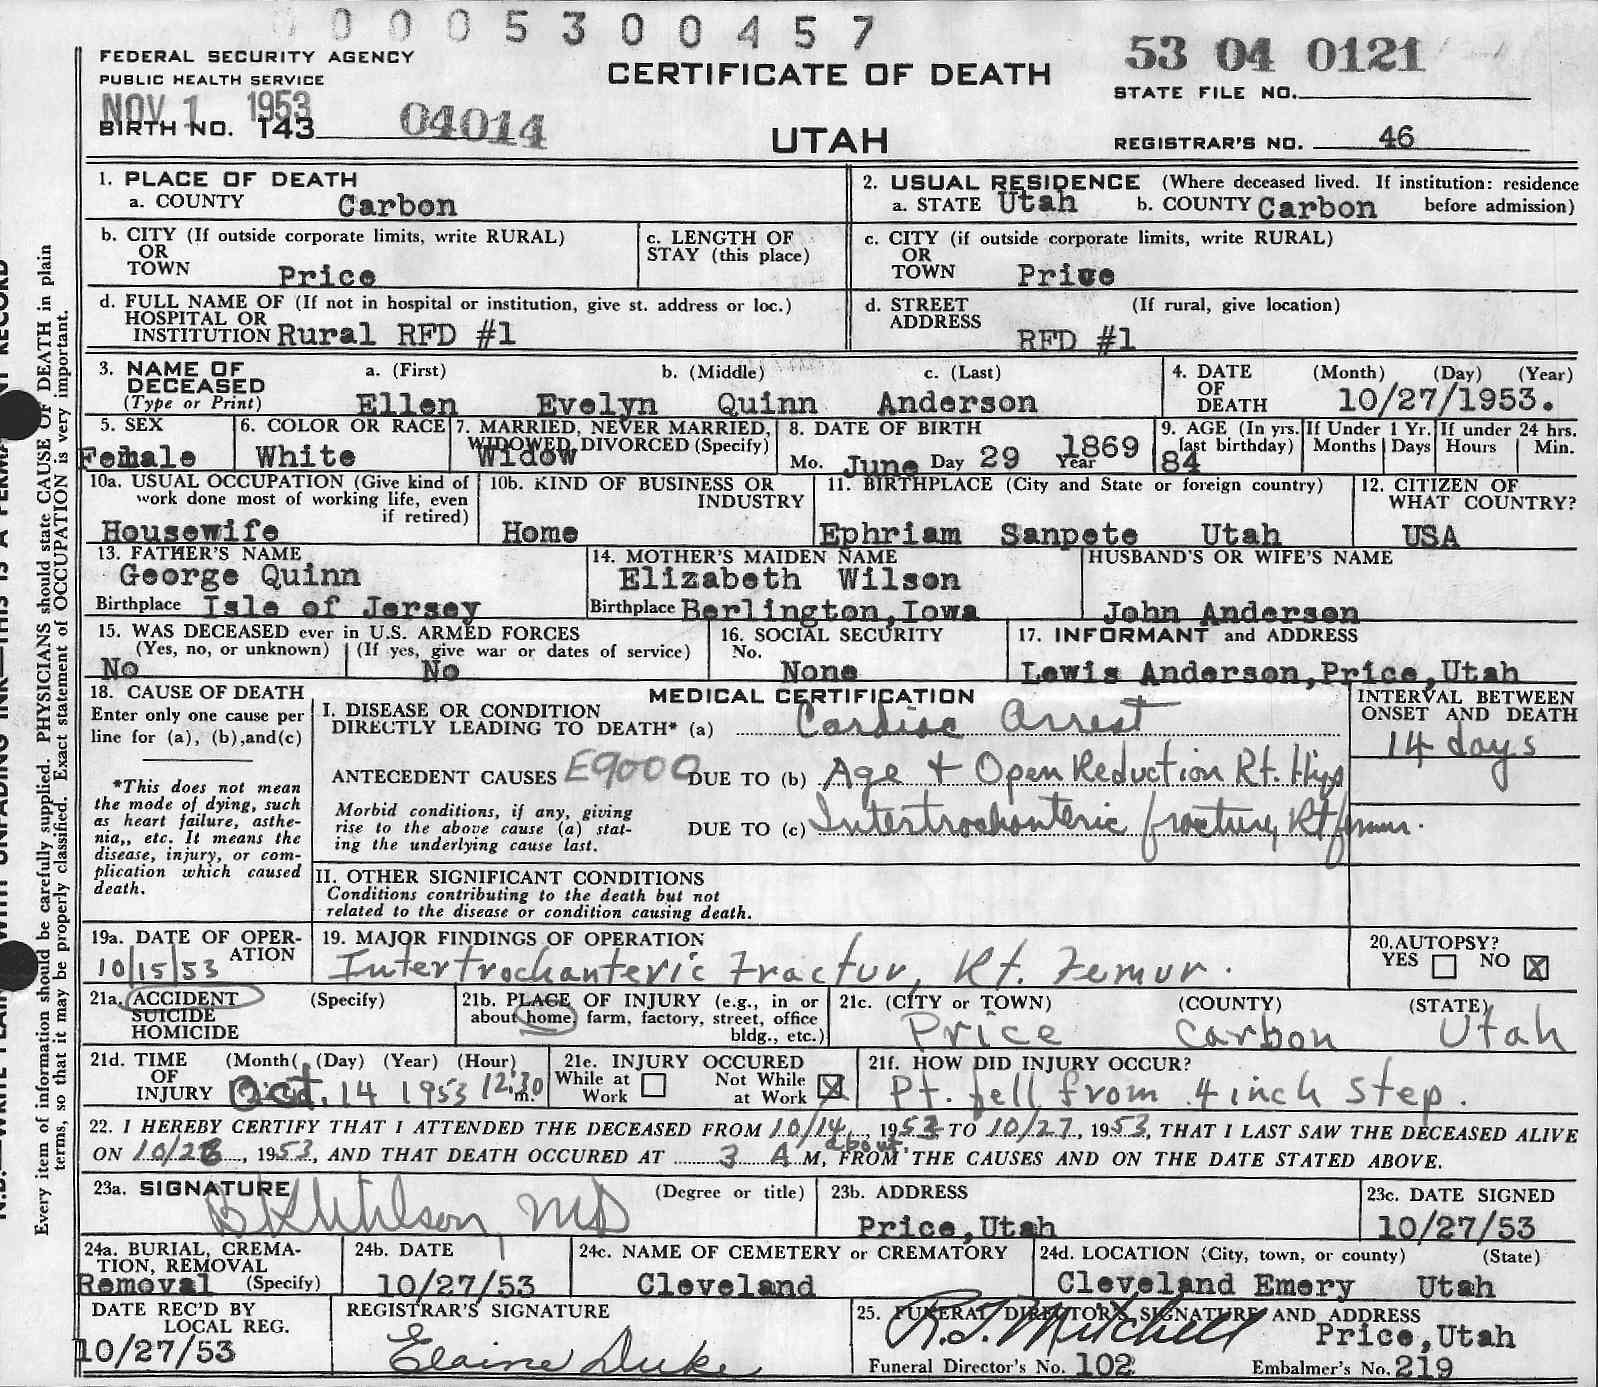 0 0 0 5 3 0 0 4 5 7
FEDERAL SECURITY AGENCY
PUBLIC HEALTH SERVICE
CERTIFICATE OF DEATH
53 04 0121
STATE FILE NO.
NOV 1 1953
BIRTH NO. 143
04014
UTAH
REGISTRAR'S NO. 46
1. PLACE OF DEATH
a. COUNTY Carbon
2. USUAL RESIDENCE (Where deceased lived. If institution: residence before admission)
a. STATE Utah b. COUNTY Carbon
b. CITY (If outside corporate limits, write RURAL)
OR
TOWN Price
c. LENGTH OF
STAY (this place)
c. CITY (if outside corporate limits, write RURAL)
OR
TOWN Price
d. FULL NAME OF (If not in hospital or institution, give st. address or loc.)
HOSPITAL OR
INSTITUTION Rural RFD #1
d. STREET (If rural, give location)
ADDRESS RFD #1
3. NAME OF a. (First) b. (Middle) c. (Last)
DECEASED
(Type or Print) Ellen Evelyn Quinn Anderson
4. DATE (Month) (Day) (Year)
OF
DEATH 10/27/1953.
5. SEX
Female
6. COLOR OR RACE
White
7. MARRIED, NEVER MARRIED,
WIDOWED, DIVORCED (Specify)
Widow
8. DATE OF BIRTH
Mo. June Day 29 Year 1869
9. AGE (In yrs. last birthday) 84
If Under 1 Yr. Months Days
If under 24 hrs. Hours Min.
10a. USUAL OCCUPATION (Give kind of
work done most of working life, even
if retired)
Housewife
10b. KIND OF BUSINESS OR
INDUSTRY
Home
11. BIRTHPLACE (City and State or foreign country)
Ephriam Sanpete Utah
12. CITIZEN OF
WHAT COUNTRY?
USA
13. FATHER'S NAME
George Quinn
Birthplace Isle of Jersey
14. MOTHER'S MAIDEN NAME
Elizabeth Wilson
Birthplace Berlington, Iowa
HUSBAND'S OR WIFE'S NAME
John Anderson
15. WAS DECEASED ever in U.S. ARMED FORCES
(Yes, no, or unknown) (If yes, give war or dates of service)
No No
16. SOCIAL SECURITY
No.
None
17. INFORMANT and ADDRESS
Lewis Anderson, Price, Utah
18. CAUSE OF DEATH
Enter only one cause per
line for (a), (b), and (c)
*This does not mean
the mode of dying, such
as heart failure, asthe-
nia,, etc. It means the
disease, injury, or com-
plication which caused
death.
MEDICAL CERTIFICATION
I. DISEASE OR CONDITION
DIRECTLY LEADING TO DEATH* (a) Cardiac Arrest
ANTECEDENT CAUSES E9000 DUE TO (b) Age + Open Reduction Rt. Hip
Morbid conditions, if any, giving
rise to the above cause (a) stat-
ing the underlying cause last.
DUE TO (c) Intertrochanteric fracture Rt femur.
INTERVAL BETWEEN
ONSET AND DEATH
14 days
II. OTHER SIGNIFICANT CONDITIONS
Conditions contributing to the death but not
related to the disease or condition causing death.
19a. DATE OF OPER-
ATION
10/15/53
19. MAJOR FINDINGS OF OPERATION
Intertrochanteric Fractur, Rt. Femur.
20. AUTOPSY?
YES ☐ NO ☒
21a. ACCIDENT (Specify)
SUICIDE
HOMICIDE
21b. PLACE OF INJURY (e.g., in or
about home, farm, factory, street, office
bldg., etc.)
21c. (CITY or TOWN) (COUNTY) (STATE)
Price Carbon Utah
21d. TIME (Month) (Day) (Year) (Hour)
OF
INJURY Oct. 14 1953 12:30 m.
21e. INJURY OCCURED
While at Work ☐ Not While at Work ☒
21f. HOW DID INJURY OCCUR?
Pt. fell from 4 inch step.
22. I HEREBY CERTIFY THAT I ATTENDED THE DECEASED FROM 10/14, 1953 TO 10/27, 1953, THAT I LAST SAW THE DECEASED ALIVE
ON 10/26, 1953, AND THAT DEATH OCCURED AT about 3 A M, FROM THE CAUSES AND ON THE DATE STATED ABOVE.
23a. SIGNATURE (Degree or title)
MD
23b. ADDRESS
Price, Utah
23c. DATE SIGNED
10/27/53
24a. BURIAL, CREMA-
TION, REMOVAL
Removal (Specify)
24b. DATE
10/27/53
24c. NAME OF CEMETERY or CREMATORY
Cleveland
24d. LOCATION (City, town, or county) (State)
Cleveland Emery Utah
DATE REC'D BY
LOCAL REG.
10/27/53
REGISTRAR'S SIGNATURE
Elaine Duke
25. FUNERAL DIRECTOR'S SIGNATURE AND ADDRESS
R. J. Mitchell Price, Utah
Funeral Director's No. 102 Embalmer's No. 219
Every item of information should be carefully supplied. PHYSICIANS should state CAUSE OF DEATH in plain
terms, so that it may be properly classified. Exact statement of OCCUPATION is very important.